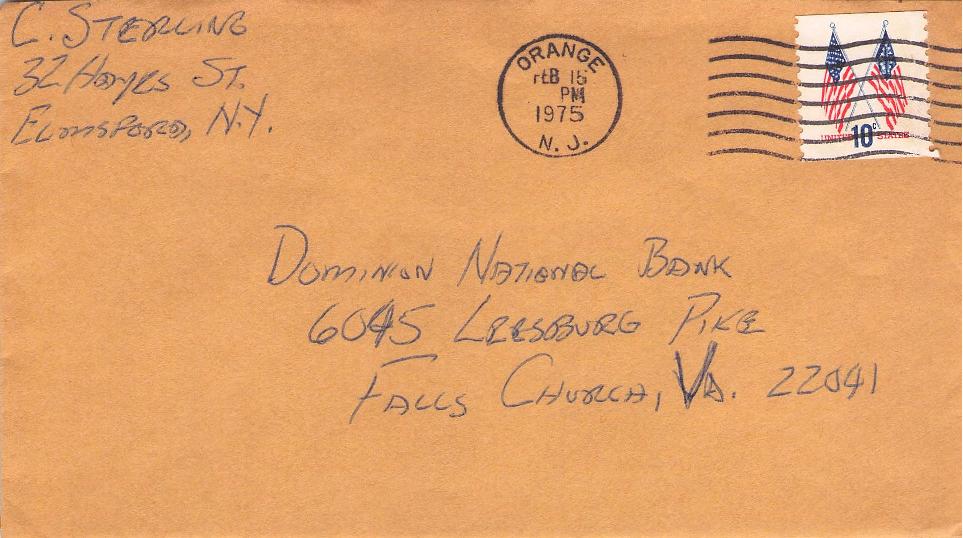 C. STERLING
32 HAYES ST.
ELMSFORD, N.Y.
ORANGE
FEB 15
PM
1975
N. J.
UNITED STATES
10c
DOMINION NATIONAL BANK
6045 LEESBURG PIKE
FALLS CHURCH, VA. 22041